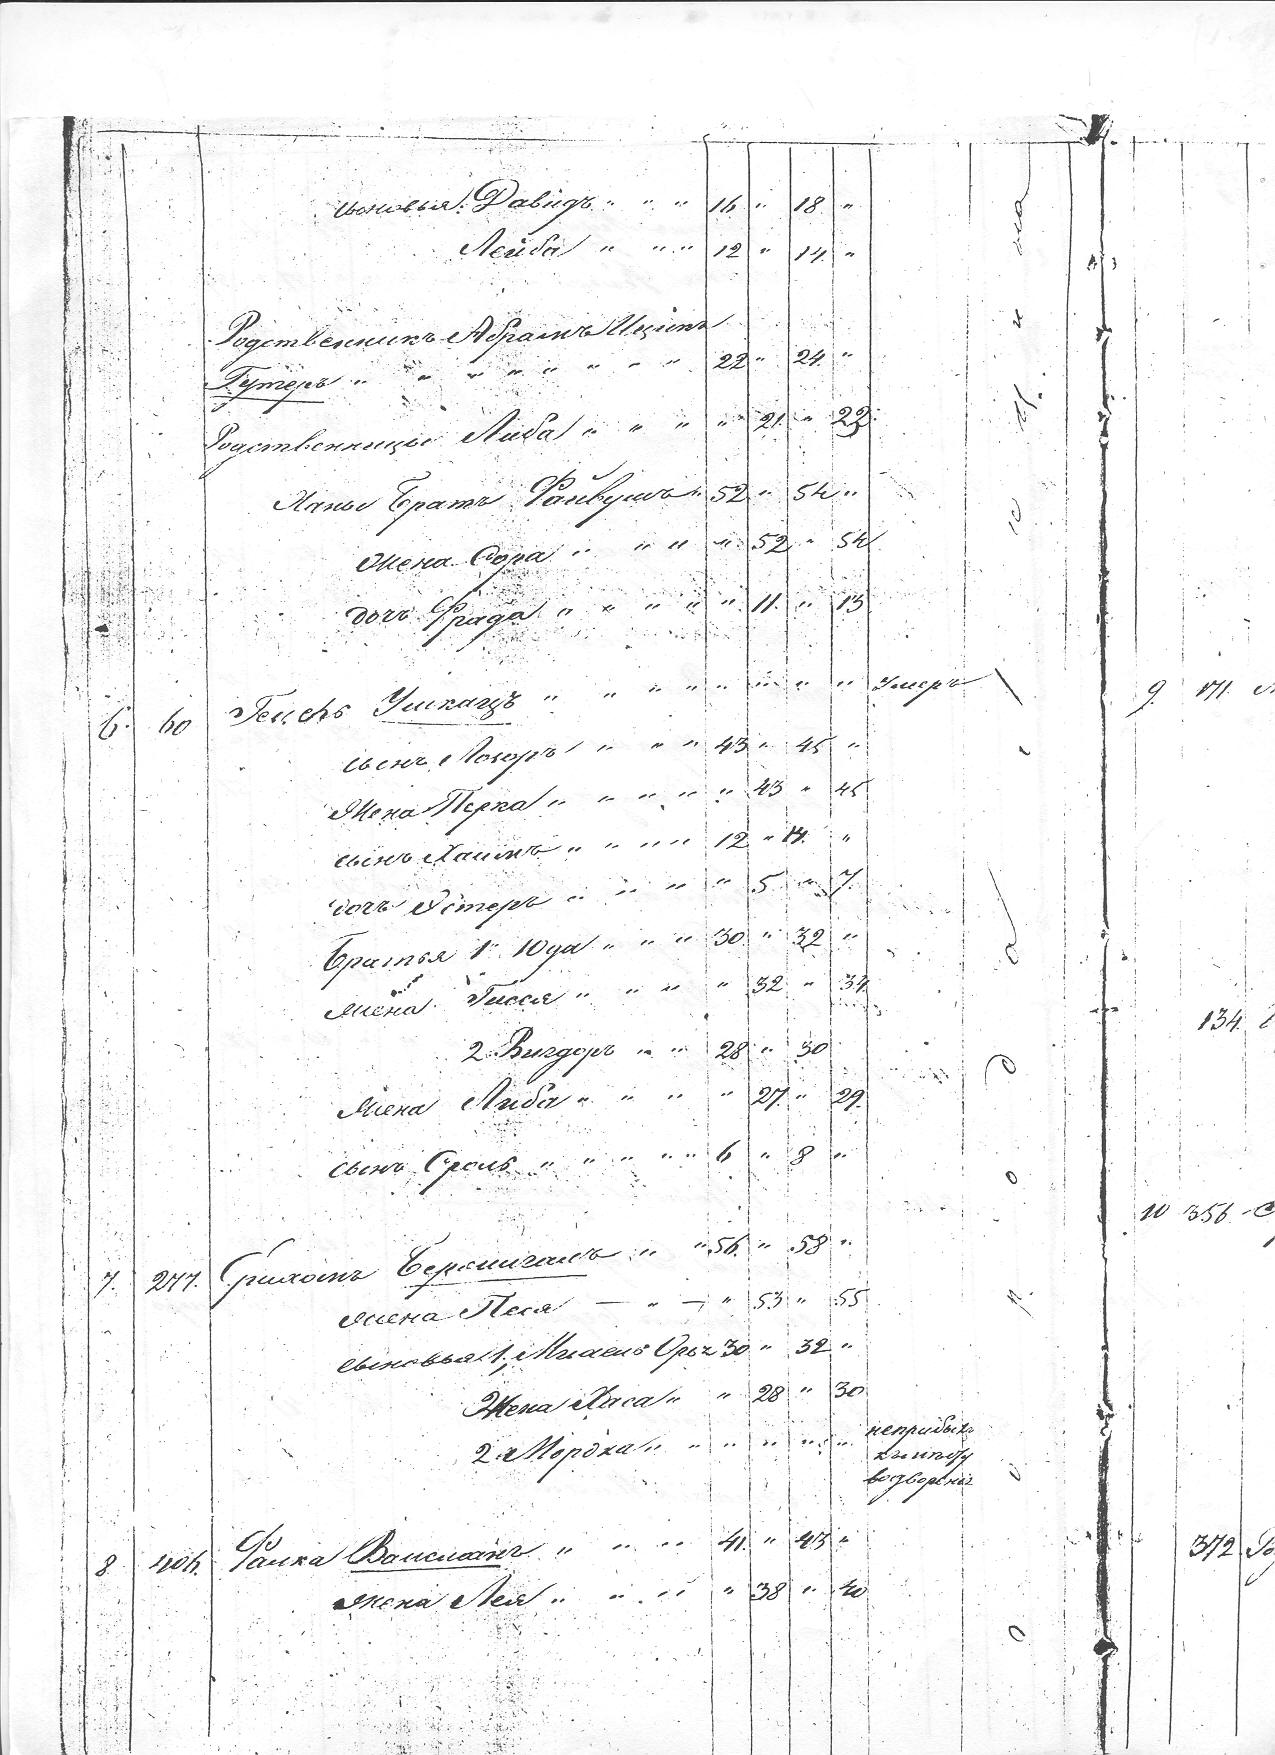 сыновья: Давидъ " " " 16 " 18 "
Лейба " " " 12 " 14 "
Родственникъ Абрамъ Ицикъ
Гутеръ " " " " " " " " 22 " 24 "
Родственницы Либа " " " " 21 " 23
Ханы Братъ Файвушъ " 52 " 54 "
жена Сора " " " " 52 " 54
дочь Фрада " " " " " 11 " 13
6. 60 Ушкацъ " " " " " " " " умеръ
сынъ Лозоръ " " " 43 " 45 "
жена Перка " " " " " 43 " 45
сынъ Хаимъ " " " " 12 " 14 "
дочь Эстеръ " " " " 5 " 7
Братья 1. Юда " " " 30 " 32 "
жена Гисся " " " " 32 " 34
2. Вигдоръ " " 28 " 30
жена Либа " " " " 27 " 29
сынъ Сроль " " " " " 6 " 8 "
7. 277. Берешигамъ " " 56 " 58 "
жена Песя — " — " 53 " 55
сыновья 1, 30 " 32 "
Жена Хаса " " 28 " 30
2. Мордка " " " " " " неприбылъ
къ мѣсту
водворенія
8 406. Вайсманъ " " " 41 " 43 "
жена Лея " " " " 38 " 40
9. 171.
134.
10 356
372